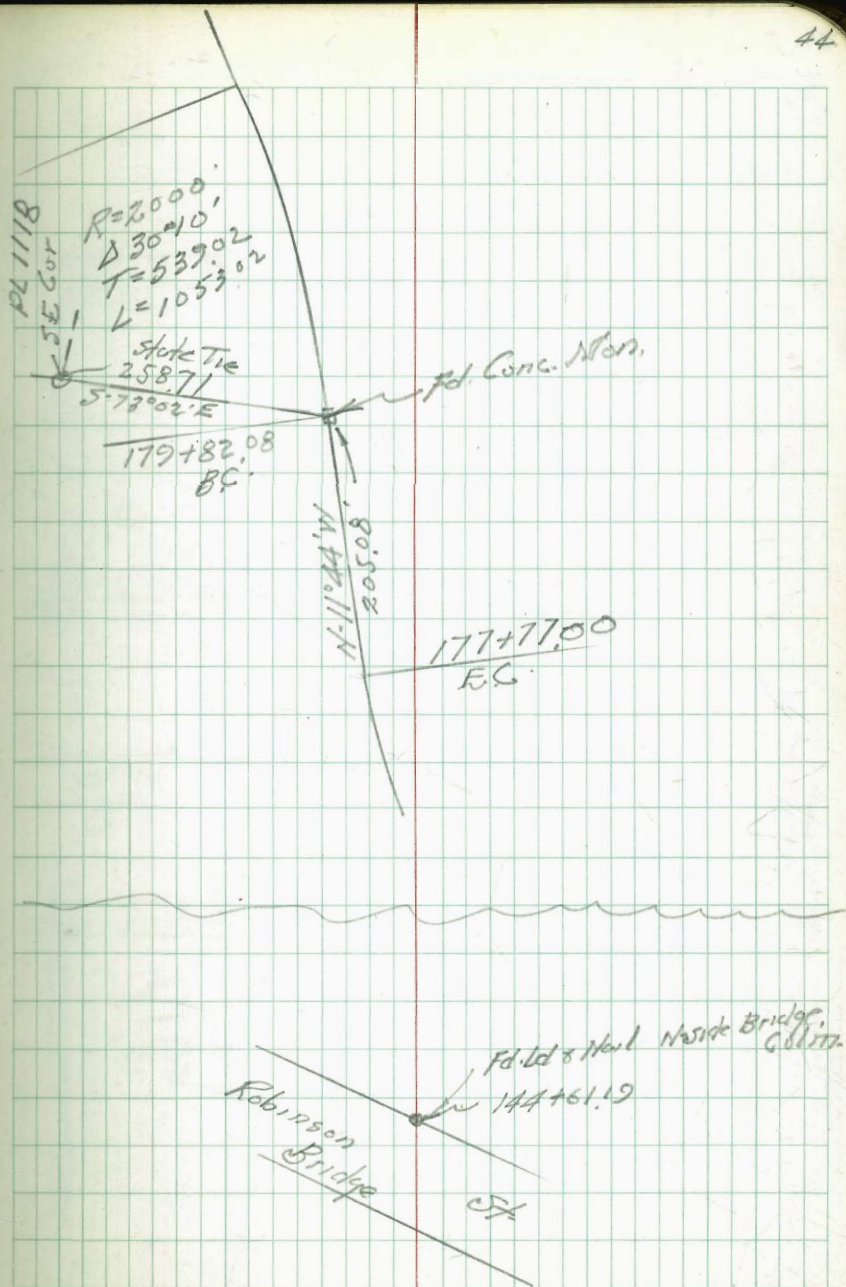 44
R=2000'
Δ 30°10'
T=539.02
L=1053.02
PL 1118
SE Cor
State Tie
258.71
S-73°02'E
Fd. Conc. Mon.
179+82.08
B.C.
N-11°44'W
205.08'
177+77.00
E.C.
Fd. Ld & Nail N side Bridge
144+61.19
Robinson
Bridge
St.